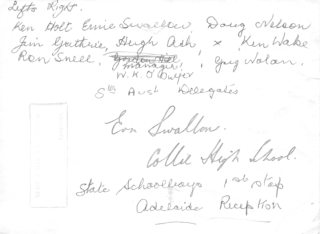 Left to Right.
Ken Holt Ernie Swallow Doug Nelson
Jim Guthrie, Hugh Ash, × Ken Wake
Ron Snell, Gordon Hill, Greg Nolan.
Manager,
W. K. O'Dwyer
Sth Aust Delegates
Ern Swallow.
Collie High School.
State Schoolboys 1st stop
Adelaide Reception